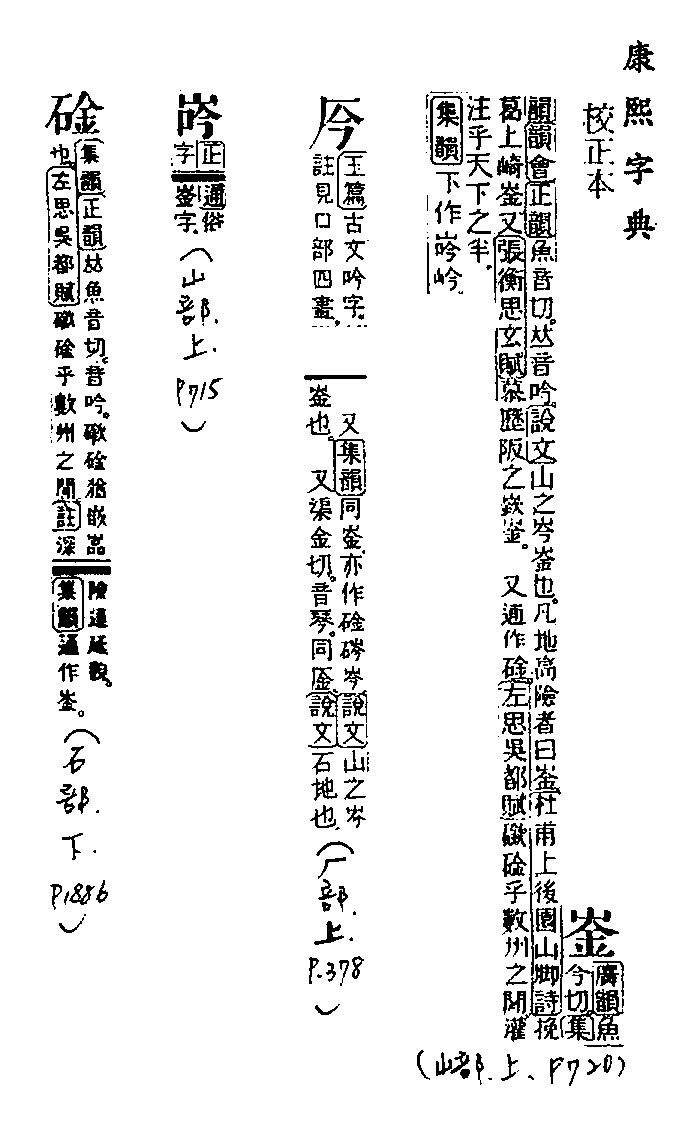 康熙字典
校正本
崟
廣韻魚
今切集
韻韻會正韻魚音切。𠀤音吟。說文山之岑崟也。凡地高險者曰崟杜甫上後園山脚詩挽
葛上崎崟又張衡思玄賦慕歷阪之嶔崟。又通作碒。左思吳都賦碒乎數州之間灌
注乎天下之半。
集韻下作岒
(山部.上、P720)
㕂
玉篇古文吟字。
註見口部四畫。
又集韻同崟亦作碒岑說文山之岑
崟也。又渠金切。音琴。同㕋說文石地也
(厂部.上.P.378)
正
字
通俗
崟字。
(山部.上.P715)
碒
集韻正韻𠀤魚音切。音吟。碒猶嵌嵓
也。左思吳都賦碒乎數州之間註深
險連延貌。
集韻通作崟。
(石部.下.P.1886)